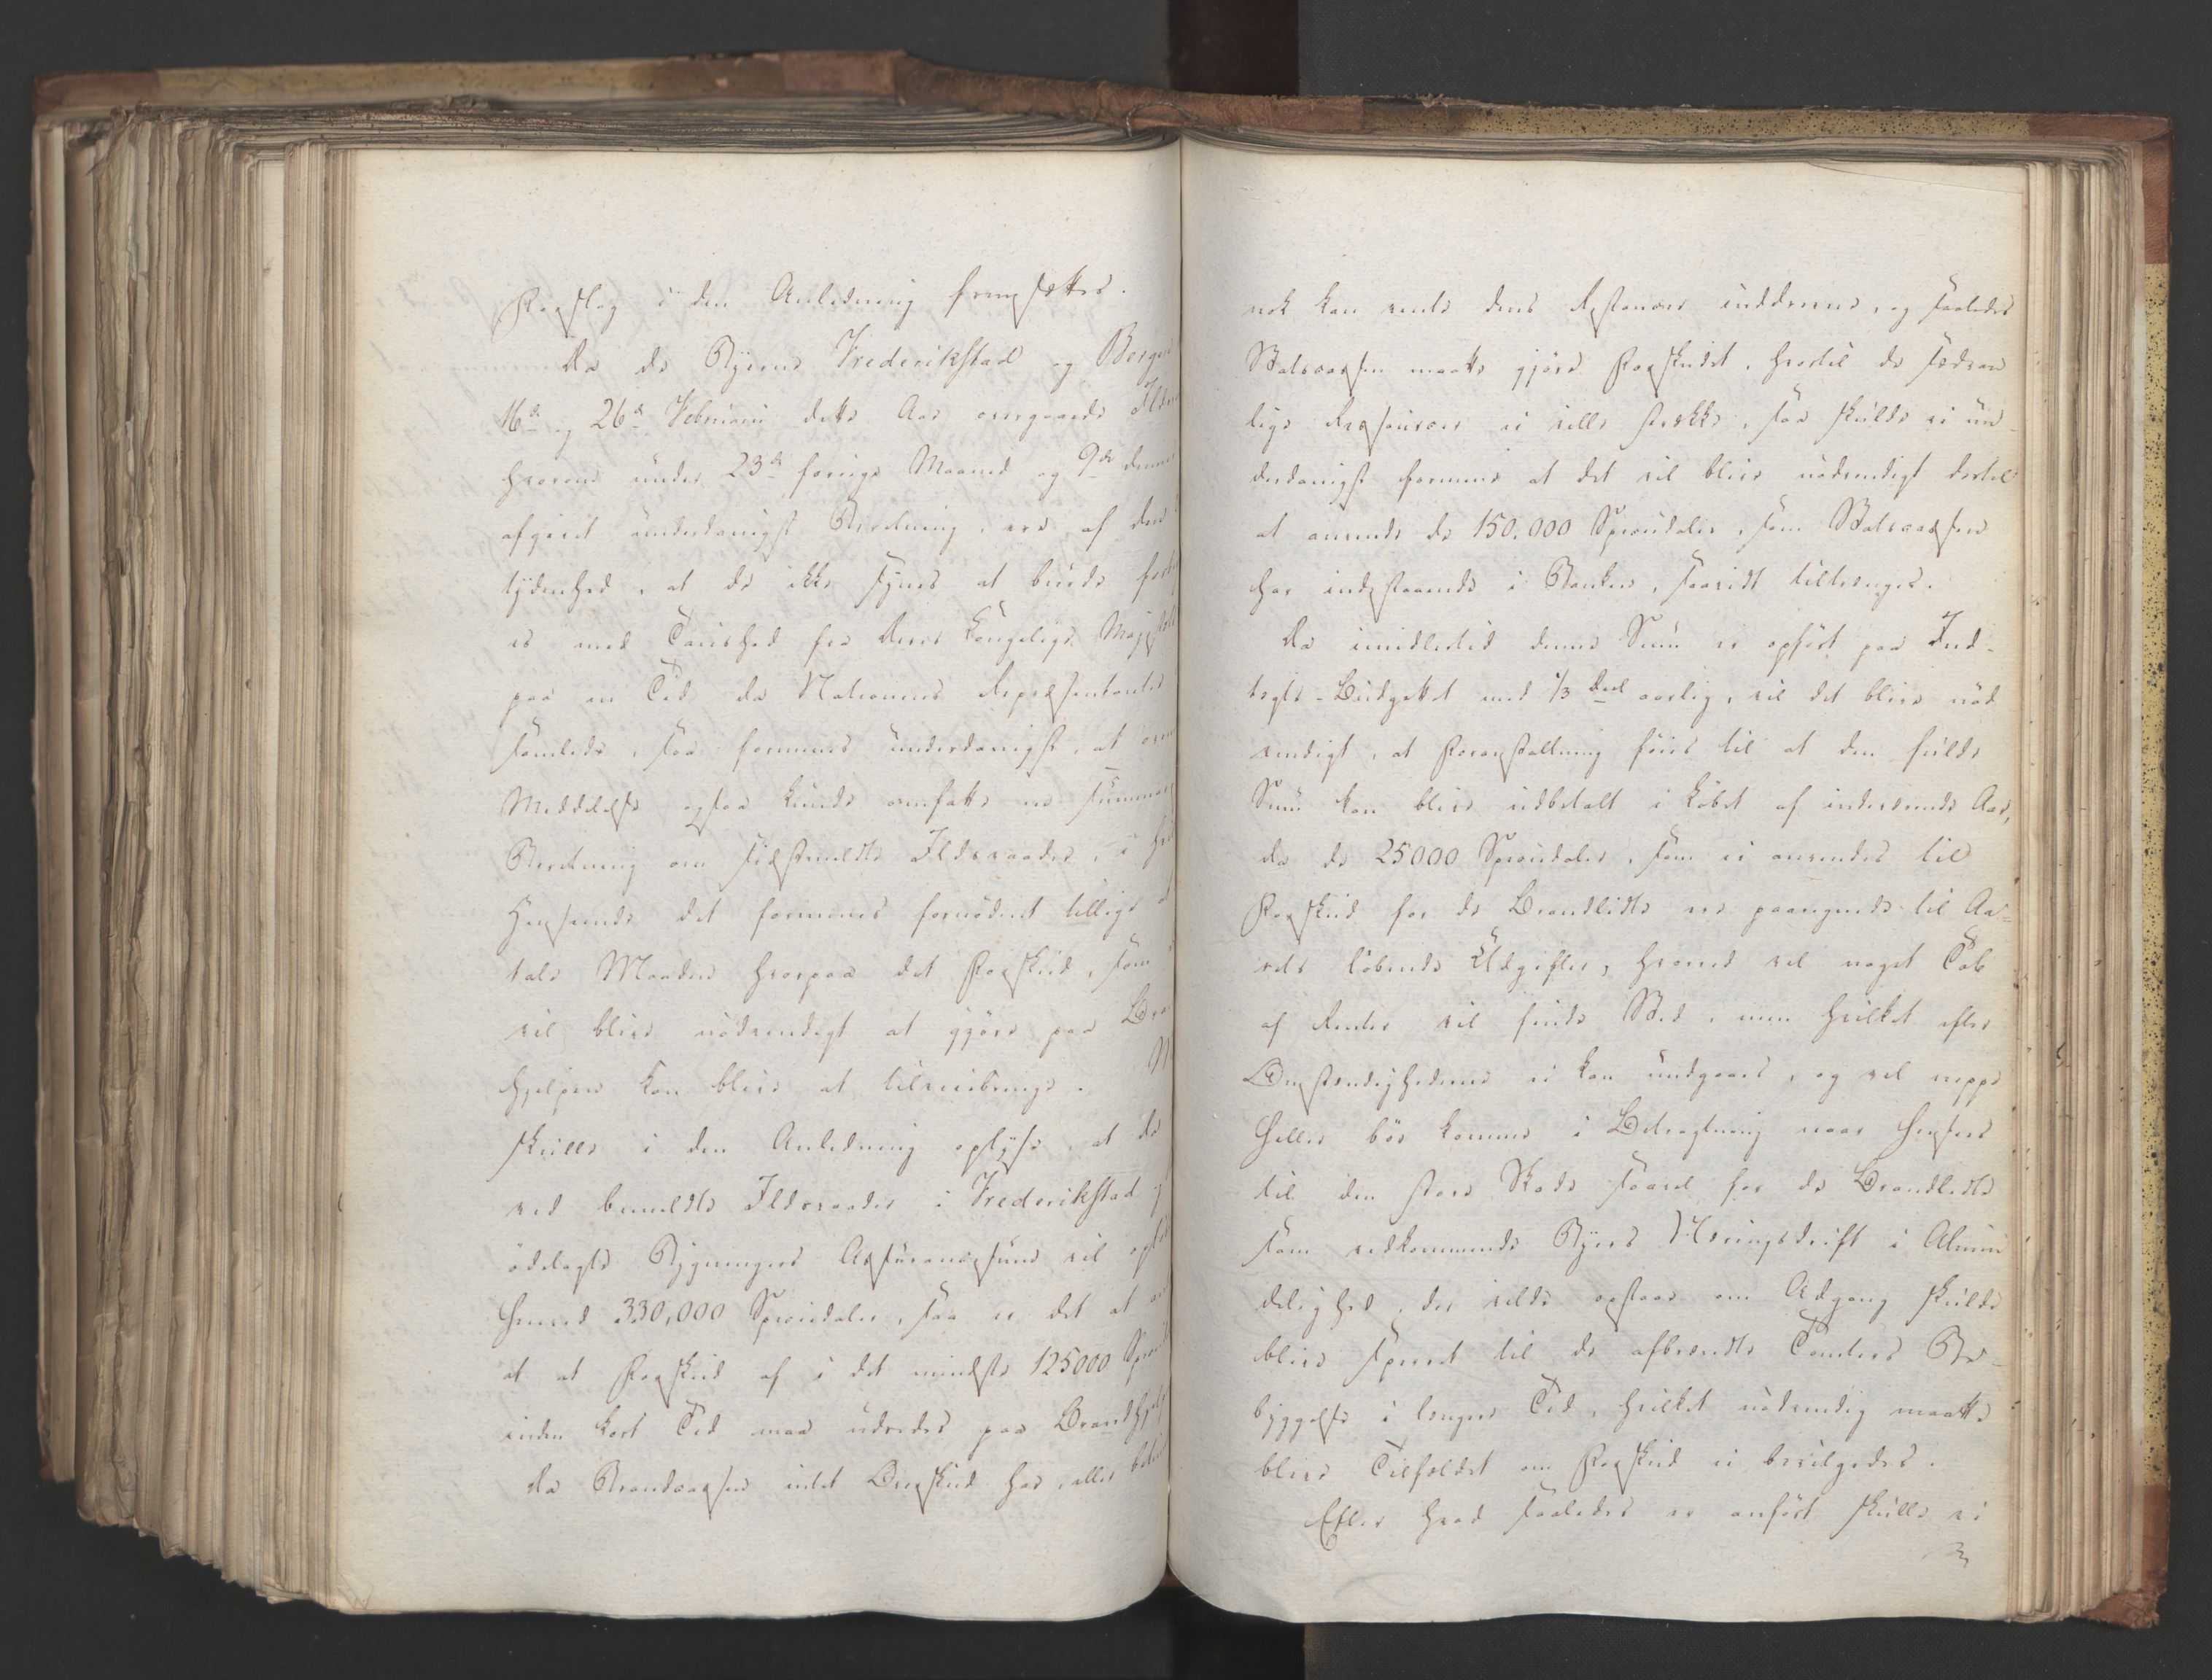 Forslag i den Anledning fremsættes.
Da de Byerne Frederikstad og Bergen
16de og 26de Februarii dette Aar overgaaede Ildsv
hvorom under 23de forrige Maaned og 9de dennes
afgivet underdanigst Beretning, ere af den
tydenhed, at de ikke synes at burde forbi
es med Taushed fra Deres Kongelige Majestæt
paa en Tid da Nationens Repræsentanter
samlede, saa formenes underdanigst, at
Meddelelse ogsaa kunde omfatte en summar
Beretning om sidstmeldte Ildsvaader, i
Henseende det formenes fornødent tillige
tale Maaden hvorpaa det Forskud, som
vil blive nødvendigt at gjøre paa Bra
hjelpen kan blive at tilveiebringe.
skulle i den Anledning oplyse, at de
ved bemeldte Ildsvaader i Frederikstad
ødelagte Bygningers Assurancesum vil
henved 330,000 Speciedaler, saa er det at
at et Forskud af i det mindste 125000
inden kort Tid maa udredes paa Brandhjelp
da Brandcassen intet Overskud har, eller
nok kan vente dens Restancer inddrevne, og saaledes
Statscassen maatte gjøre Forskudet, hvortil de sædvan
lige Ressourcer ei ville strække, saa skulde vi un-
derdanigst formene at det vil blive nødvendigt dertil
at anvende de 150,000 Speciedaler, som Statscassen
har indestaaende i Banken, saavidt tiltrænges.
Da imidlertid denne Sum er opført paa Ind-
tægts-Budgettet med 1/3 Deel aarlig, vil det blive nød
vendigt, at Foranstaltning føies til at den fulde
Sum kan blive udbetalt i Løbet af indeværende Aar,
da de 25000 Speciedaler, som ei anvendes til
Forskud for de Brandlidte ere paaregnede til Aa-
rets løbende Udgifter, hvorved vel noget Tab
af Renter vil finde Sted, men hvilket efter
Omstændighederne ei kan undgaaes, og vel neppe
heller bør komme i Betragtning naar henseees
til den store Skade saavel for de Brandlidte
som vedkommende Byers Næringsdrift i Almin
delighed, der vilde opstaae om Adgang skulde
blive spærret til de afbrændte Tomters Be-
byggelse i længere Tid, hvilket nødvendig maatte
blive Tilfældet om Forskud ei bevilgedes.
Efter hvad saaledes er anført skulle vi